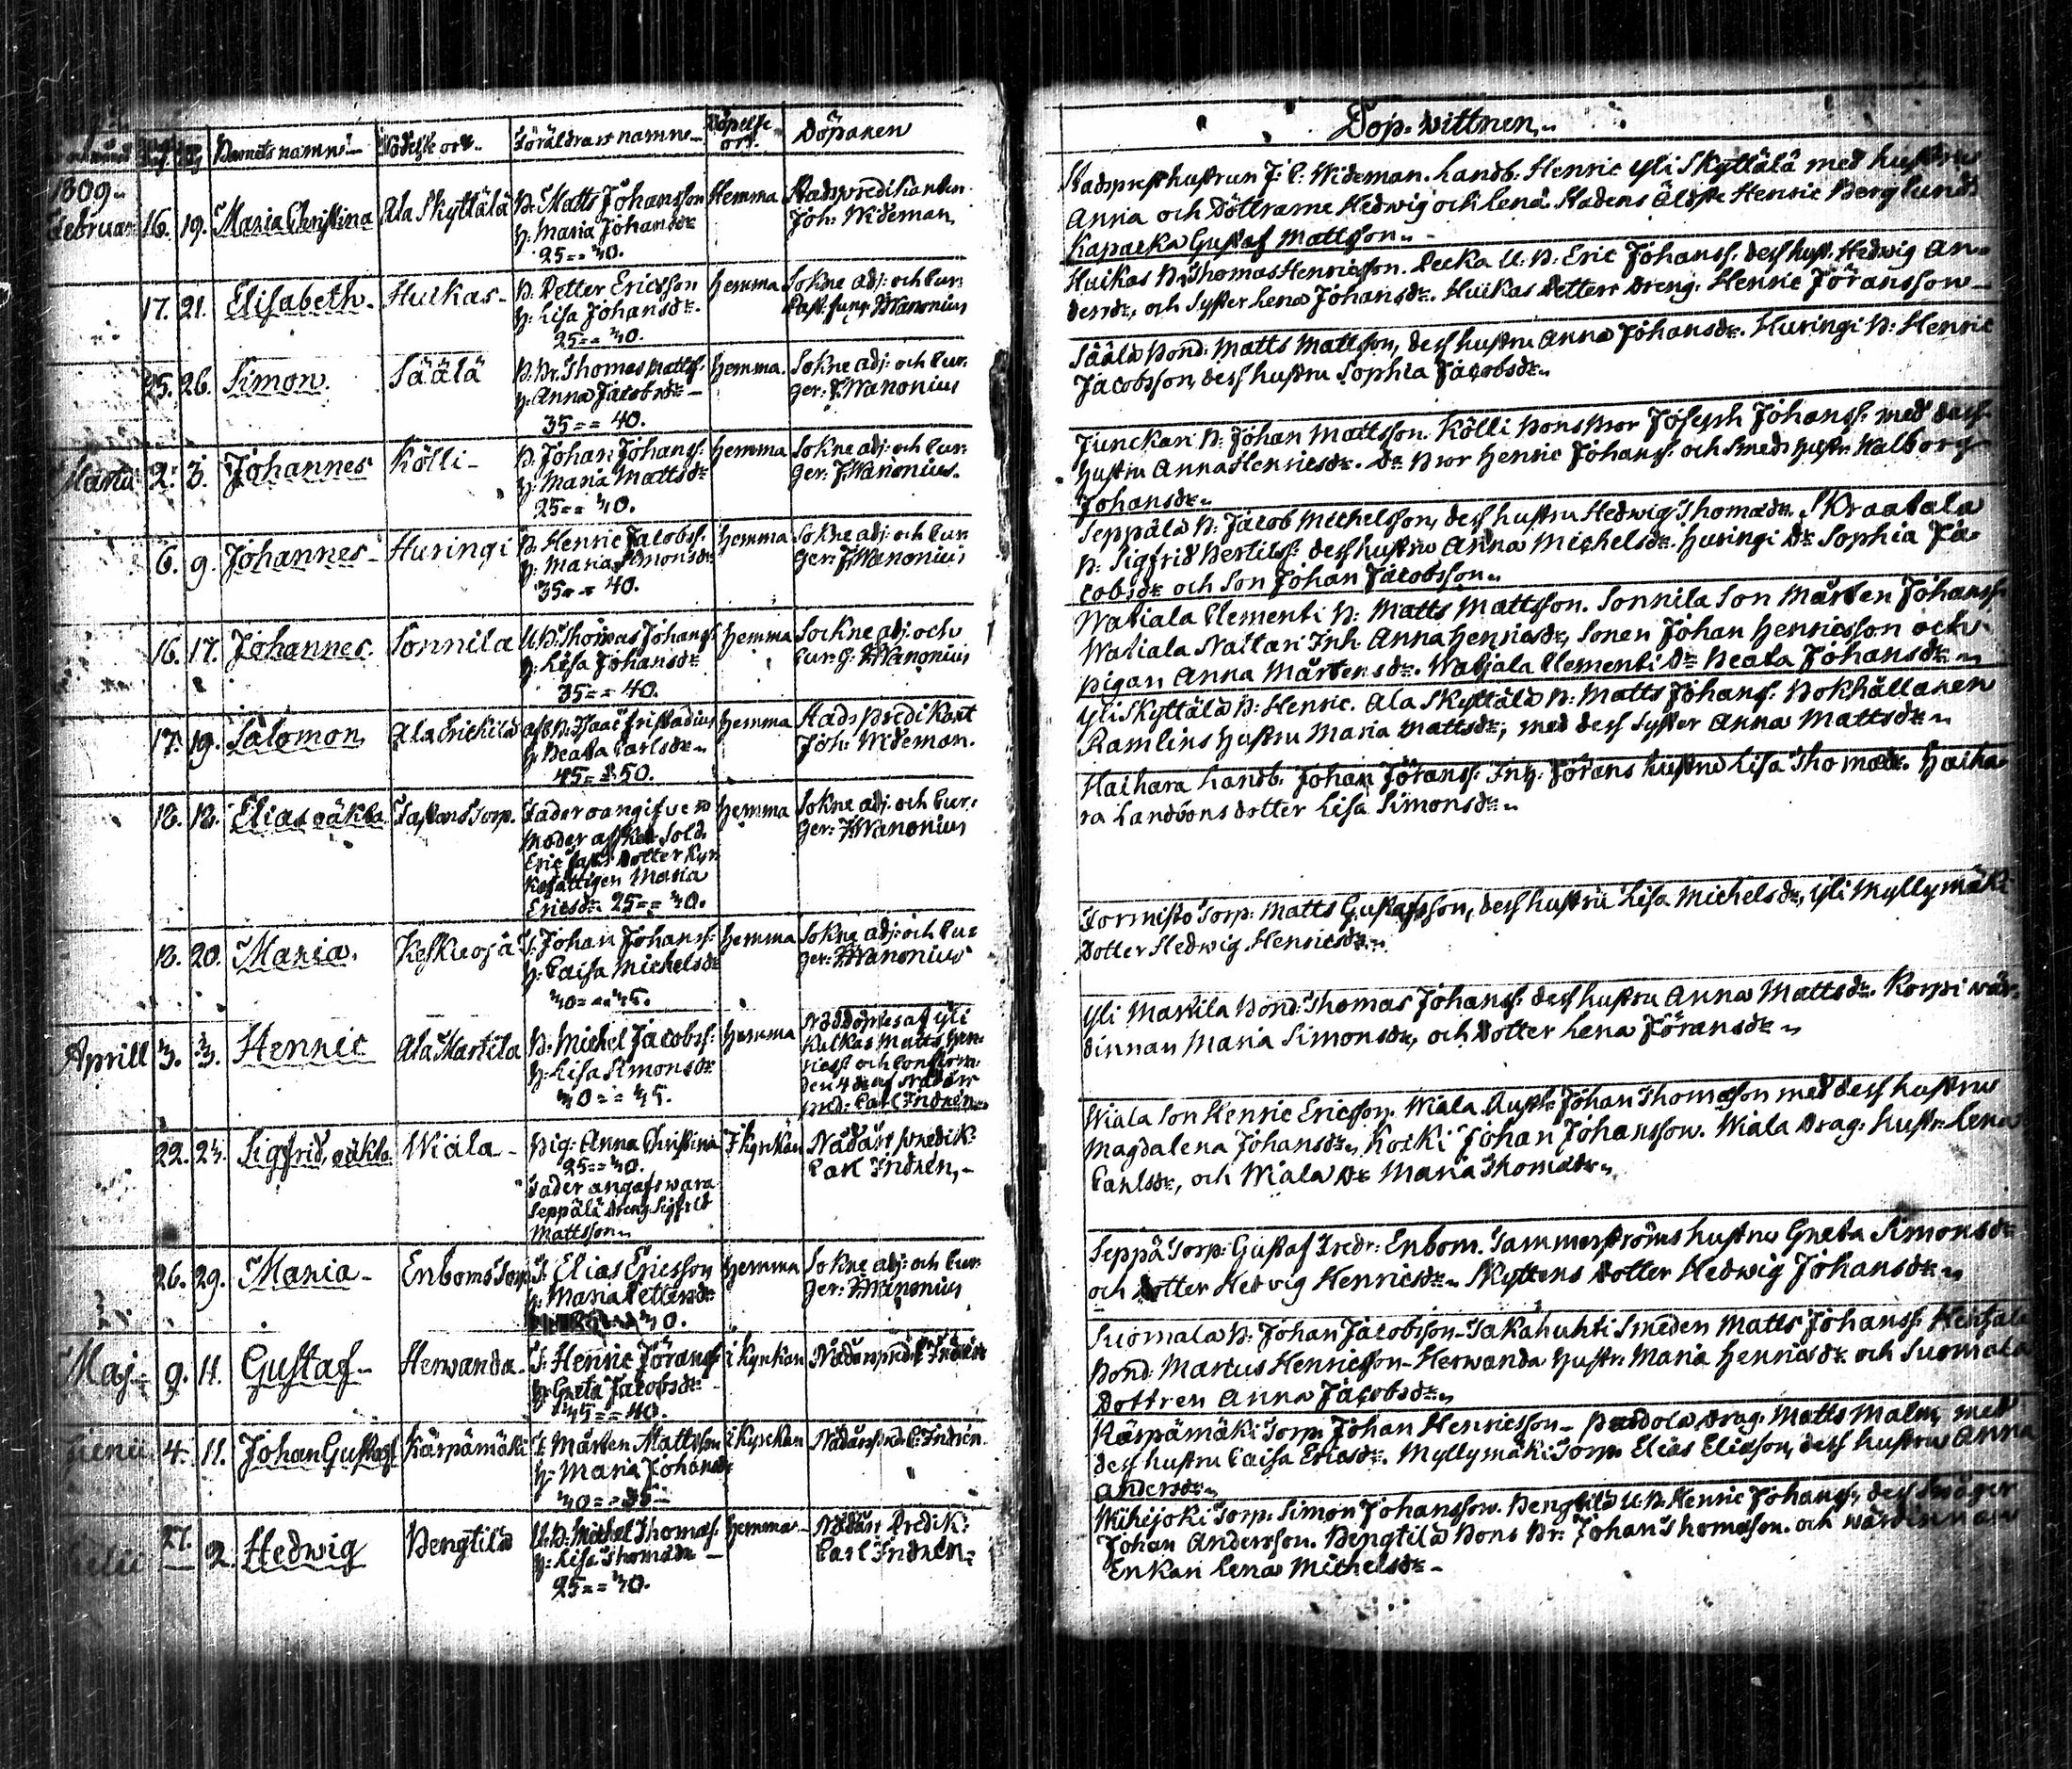 Barnets namn Födelse ort Föräldrarnes namn Döpelse ort. Döparen
1809.
Februar. 16. 19. Maria Christina Ala Skyttälä B. Matts Johansson Hemma Stadspredikanten
h: Maria Johansdr Joh: Wideman
25 == 40.
17. 21. Elisabeth. Huikas. B. Petter Ericsson hemma Sokne adj: och Cur:
h: Lisa Johansdr. Past. fung. Wanonius
25 == 40.
25. 26. Simon. Säälä B. Br. Thomas Matts. hemma. Sokne adj: och Cur:
h: Anna Jacobsdr ger: F. Wanonius
35 == 40.
Martii 2. 3. Johannes Kölli B. Johan Johanss: hemma Sokne adj: och Cur:
h: Maria Mattsdr ger: F. Wanonius.
25 == 40.
6. 9. Johannes Huringi B. Henric Jacobss. hemma Sokne adj: och Cur
h: Maria Simonsdr ger: F. Wanonius
35 == 40.
16. 17. Johannes. Sonnila U. B. Thomas Johanss hemma Sockne adj: och
h: Lisa Johansdr Cur. G. F. Wanonius
35 == 40.
17. 19. Salomon B. Isaac hemma Stads Predikant
h: Beata Carlsdr Joh: Wideman.
45 == 50.
18. 18. Elias oäkta Torp. Fader oangifven hemma Sokne adj: och Cur:
Moder afsked. Sold. ger: F. Wanonius
Eric Dotter
Maria
Ericsdr 25 == 40.
18. 20. Maria. Keskieoja T. Johan Johanss: hemma Sokne adj: och Cur
h: Caisa Michelsdr ger: F. Wanonius
40 == 45.
Aprill 3. 3. Henric Ala Marttila B. Michel Jacobss: hemma Nöddöptes af Yli
h: Lisa Simonsdr Kulkas Matts Hen-
40 == 45. ricss. och Confirm.
den 4 de af Nådårs
pred: Carl Indrén
22. 24. Sigfrid, oäkta Wiala Pig: Anna Christina I kyrkan Nådårs predik:
25 == 40. Carl Indrén,
Fader angafs wara
Seppälä Dreng Sigfrid
Mattsson
26. 29. Maria Enboms Torp T. Elias Ericsson hemma Sokne adj: och Cur:
h: Maria Pettersdr ger: F. Wanonius
40.
Maj. 9. 11. Gustaf Herwanda T. Henric Jöranss i kyrkan Nådårs pred: C. Indrén
h: Greta Jacobsdr
45 == 40.
Junii 4. 11. Johan Gustaf Kärpämäki T. Mårten Mattsson i kyrkan Nådårs pred: C. Indrén.
h: Maria Johansdr
40 == 35
27.
Julii 2. Hedwig Bengtilä U. B. Michel Thomass. hemma Nådårs Predik:
h: Lisa Thomasdr Carl Indrén,
25 == 40.
Dop-wittnen
Stadsprest hustrun J. C. Wideman. Landb. Henric Yli Skyttälä med hustru
Anna och Döttrarne Hedwig och Lena. Stadens Äldste Henric Berglund
Gustaf Mattsson
Huikas B. Thomas Henricsson. Pecka U: B. Eric Johanss: dess hust. Hedwig An-
dersdr, och Syster Lena Johansdr. Huikas Petters Dreng. Henric Jöransson
Säälä Bond. Matts Mattsson, dess hustru Anna Johansdr. Huringi B. Henric
Jacobsson, dess hustru Sophia Jacobsdr
Junckari B. Johan Mattsson. Kölli Bons Bror Joseph Johanss: med dess
hustru Anna Henricsdr. Dr. Bror Henric Johanss: och Smeds hustr. Walborg
Johansdr
Seppälä B. Jacob Michelsson, dess hustru Hedwig Thomasdr. Skraatala
B. Sigfrid Bertilss: dess hustru Anna Michelsdr. Huringi Dr Sophia Ja-
cobsdr och Son Johan Jacobsson
Watiala Clementi B. Matts Mattsson. Sonnila Son Mårten Johanss:
Watiala Naitari Inh. Anna Henricsdr, Sonen Johan Henricsson och
pigan Anna Mårtensdr. Watiala Clementi Dr Beata Johansdr
Yli Skyttälä B. Henric. Ala Skyttälä B. Matts Johanss: Bokhållaren
Ramlins hustru Maria Mattsdr, med dess Syster Anna Mattsdr
Haihara Landb. Johan Jöranss: Inh. Jörans hustru Lisa Thomasdr. Haiha-
ra Landbons dotter Lisa Simonsdr
Tornisto Torp. Matts Gustafsson, dess hustru Lisa Michelsdr, Yli Myllymäki
Dotter Hedwig Henricsdr.
Yli Marttila Bond. Thomas Johanss. dess hustru Anna Mattsdr. Korpi wär-
dinnan Maria Simonsdr, och Dotter Lena Jöransdr
Wiala Son Henric Ericsson. Wiala Johan Thomasson med dess hustru
Magdalena Johansdr, Kocki Johan Johansson. Wiala Drag. hustr. Lena
Carlsdr, och Wiala Dr Maria Thomasdr
Seppä Torp. Gustaf Fredr. Enbom. Tammerströms hustru Greta Simonsdr
och Dotter Hedwig Henricsdr. Skyttens Dotter Hedwig Johansdr
Suomala B. Johan Jacobsson. Takahuhti Smeden Matts Johanss:
Bond. Marcus Henricsson. Herwanda hustr. Maria Henricsdr och Suomala
Dottren Anna Jacobsdr
Kärpämäki Torp. Johan Henricsson. Drag. Matts Malm, med
dess hustru Caisa Ericsdr. Myllymäki Torp. Elias Eliasson, dess hustru Anna
Andersdr
Torp. Simon Johansson. Bengtilä U. B. Henric Johanss, dess Swåger
Johan Andersson. Bengtilä Bons Br. Johan Thomasson. och wärdinnan
Enkan Lena Michelsdr